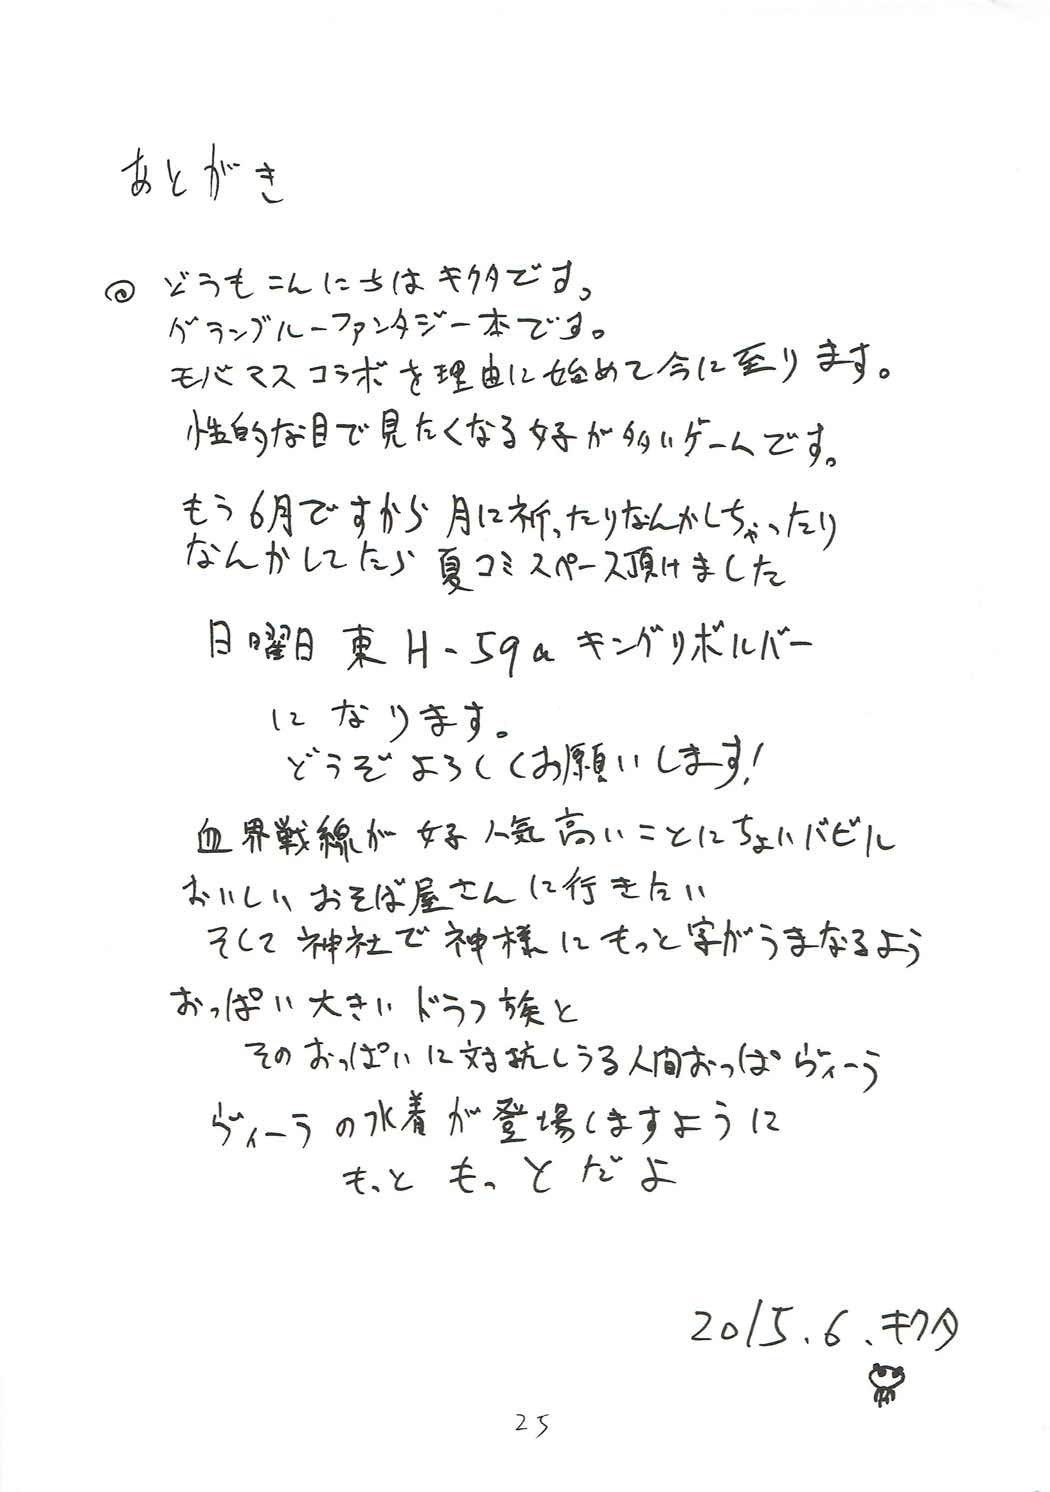 あとがき
◎ どうもこんにちは キクタです。
グランブルーファンタジー本です。
モバマスコラボを理由に始めて今に至ります。
性的な目で見たくなる女子が多いゲームです。
もう6月ですから 月に祈ったりなんかしちゃったり
なんかしてたら 夏コミスペース頂けました
日曜日 東 H-59a キングリボルバー
になります。
どうぞよろしくお願いします!
血界戦線が 女子人気高いことにちょいバビル
おいしいおそば屋さんに行きたい
そして神社で神様にもっと字がうまなるよう
おっぱい大きいドラフ族と
そのおっぱいに対抗しうる人間おっぱヴィーラ
ヴィーラの水着が登場しますように
もっと もっとだよ
2015.6.キクタ
25